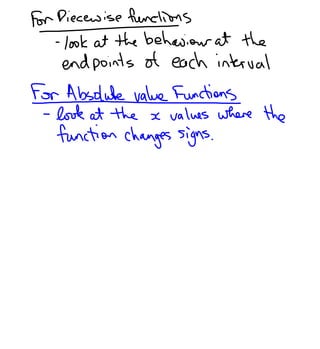 For Piecewise functions
- look at the behaviour at the
endpoints of each interval
For Absolute value Functions
- look at the x values where the
function changes signs.